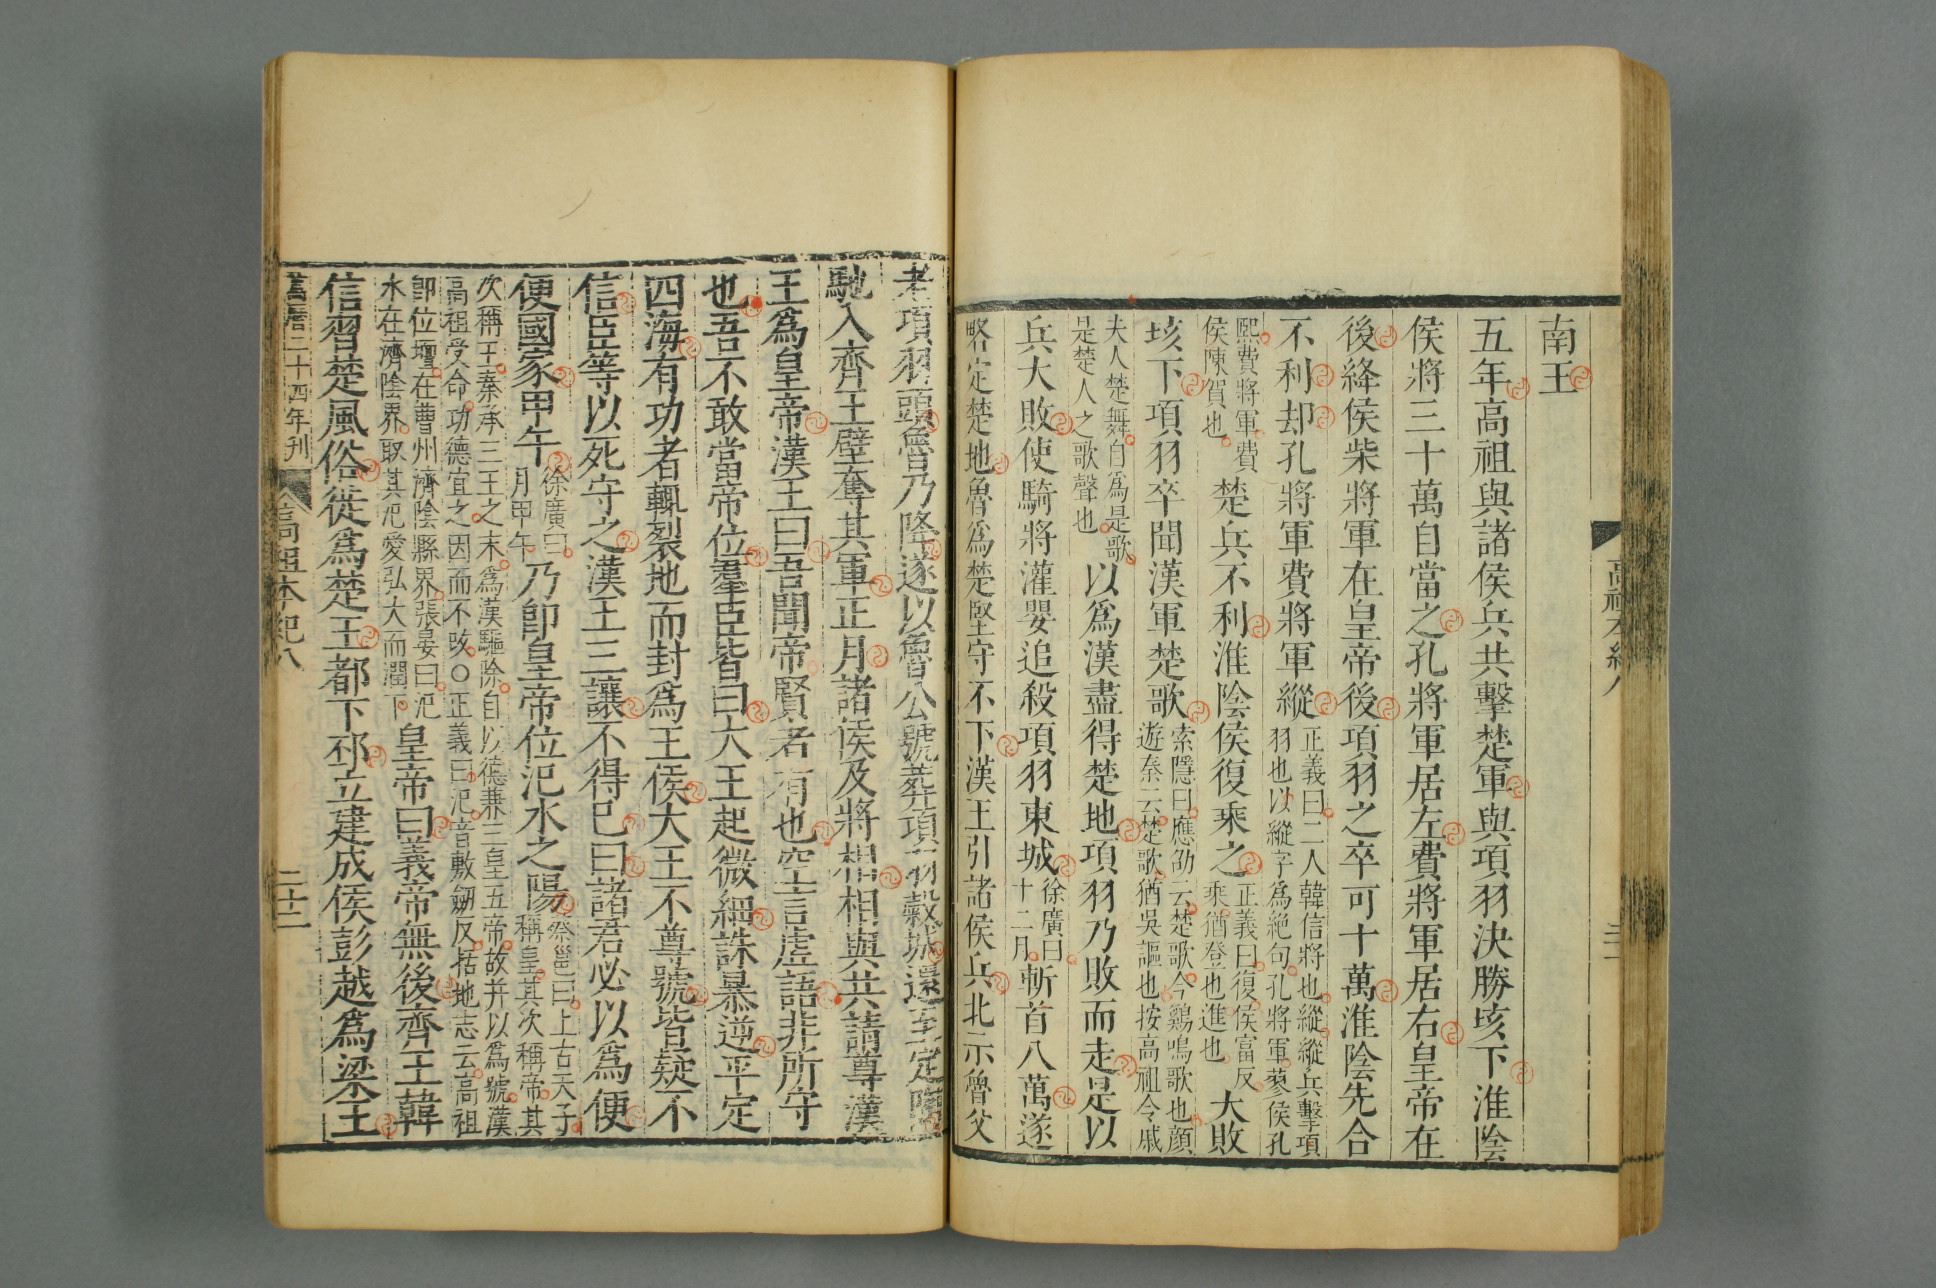 南王
五年高祖與諸侯兵共擊楚軍與項羽決勝垓下淮陰
侯將三十萬自當之孔將軍居左費將軍居右皇帝在
後絳侯柴將軍在皇帝後項羽之卒可十萬淮陰先合
不利却孔將軍費將軍縱正義曰二人韓信將也縱縱兵擊項
羽也以縱字為絶句孔將軍蓼侯孔
熙費將軍費
侯陳賀也楚兵不利淮陰侯復乗之正義曰復侯富反
乗猶登也進也大敗
垓下項羽卒聞漢軍楚歌索隱曰應劭云楚歌今鷄鳴歌也顔
遊秦云楚歌猶吳謳也按高祖令戚
夫人楚舞自為是歌
是楚人之歌聲也以爲漢盡得楚地項羽乃敗而走是以
兵大敗使騎將灌嬰追殺項羽東城徐廣曰
十二月斬首八萬遂
略定楚地魯爲楚堅守不下漢王引諸侯兵北示魯父
老項羽頭魯乃降遂以魯公號葬項羽榖城還至定陶
馳入齊王壁奪其軍正月諸侯及將相相與共請尊漢
王爲皇帝漢王曰吾聞帝賢者有也空言虚語非所守
也吾不敢當帝位羣臣皆曰大王起微細誅暴逆平定
四海有功者輒裂地而封爲王侯大王不尊號皆疑不
信臣等以死守之漢王三讓不得已曰諸君必以爲便
便國家甲午徐廣曰
月甲午乃卽皇帝位汜水之陽蔡邕曰上古天子
稱皇其次稱帝其
次稱王秦承三王之末爲漢驅除自以德兼三皇五帝故并以爲號漢
高祖受命功德宜之因而不改○正義曰汜音敷劒反括地志云高祖
卽位壇在曹州濟陰縣界張晏曰汜
水在濟陰界取其汜愛弘大而潤下皇帝曰義帝無後齊王韓
信習楚風俗徙爲楚王都下邳立建成侯彭越爲梁王
萬曆二十四年刊
高祖本紀八
二十二